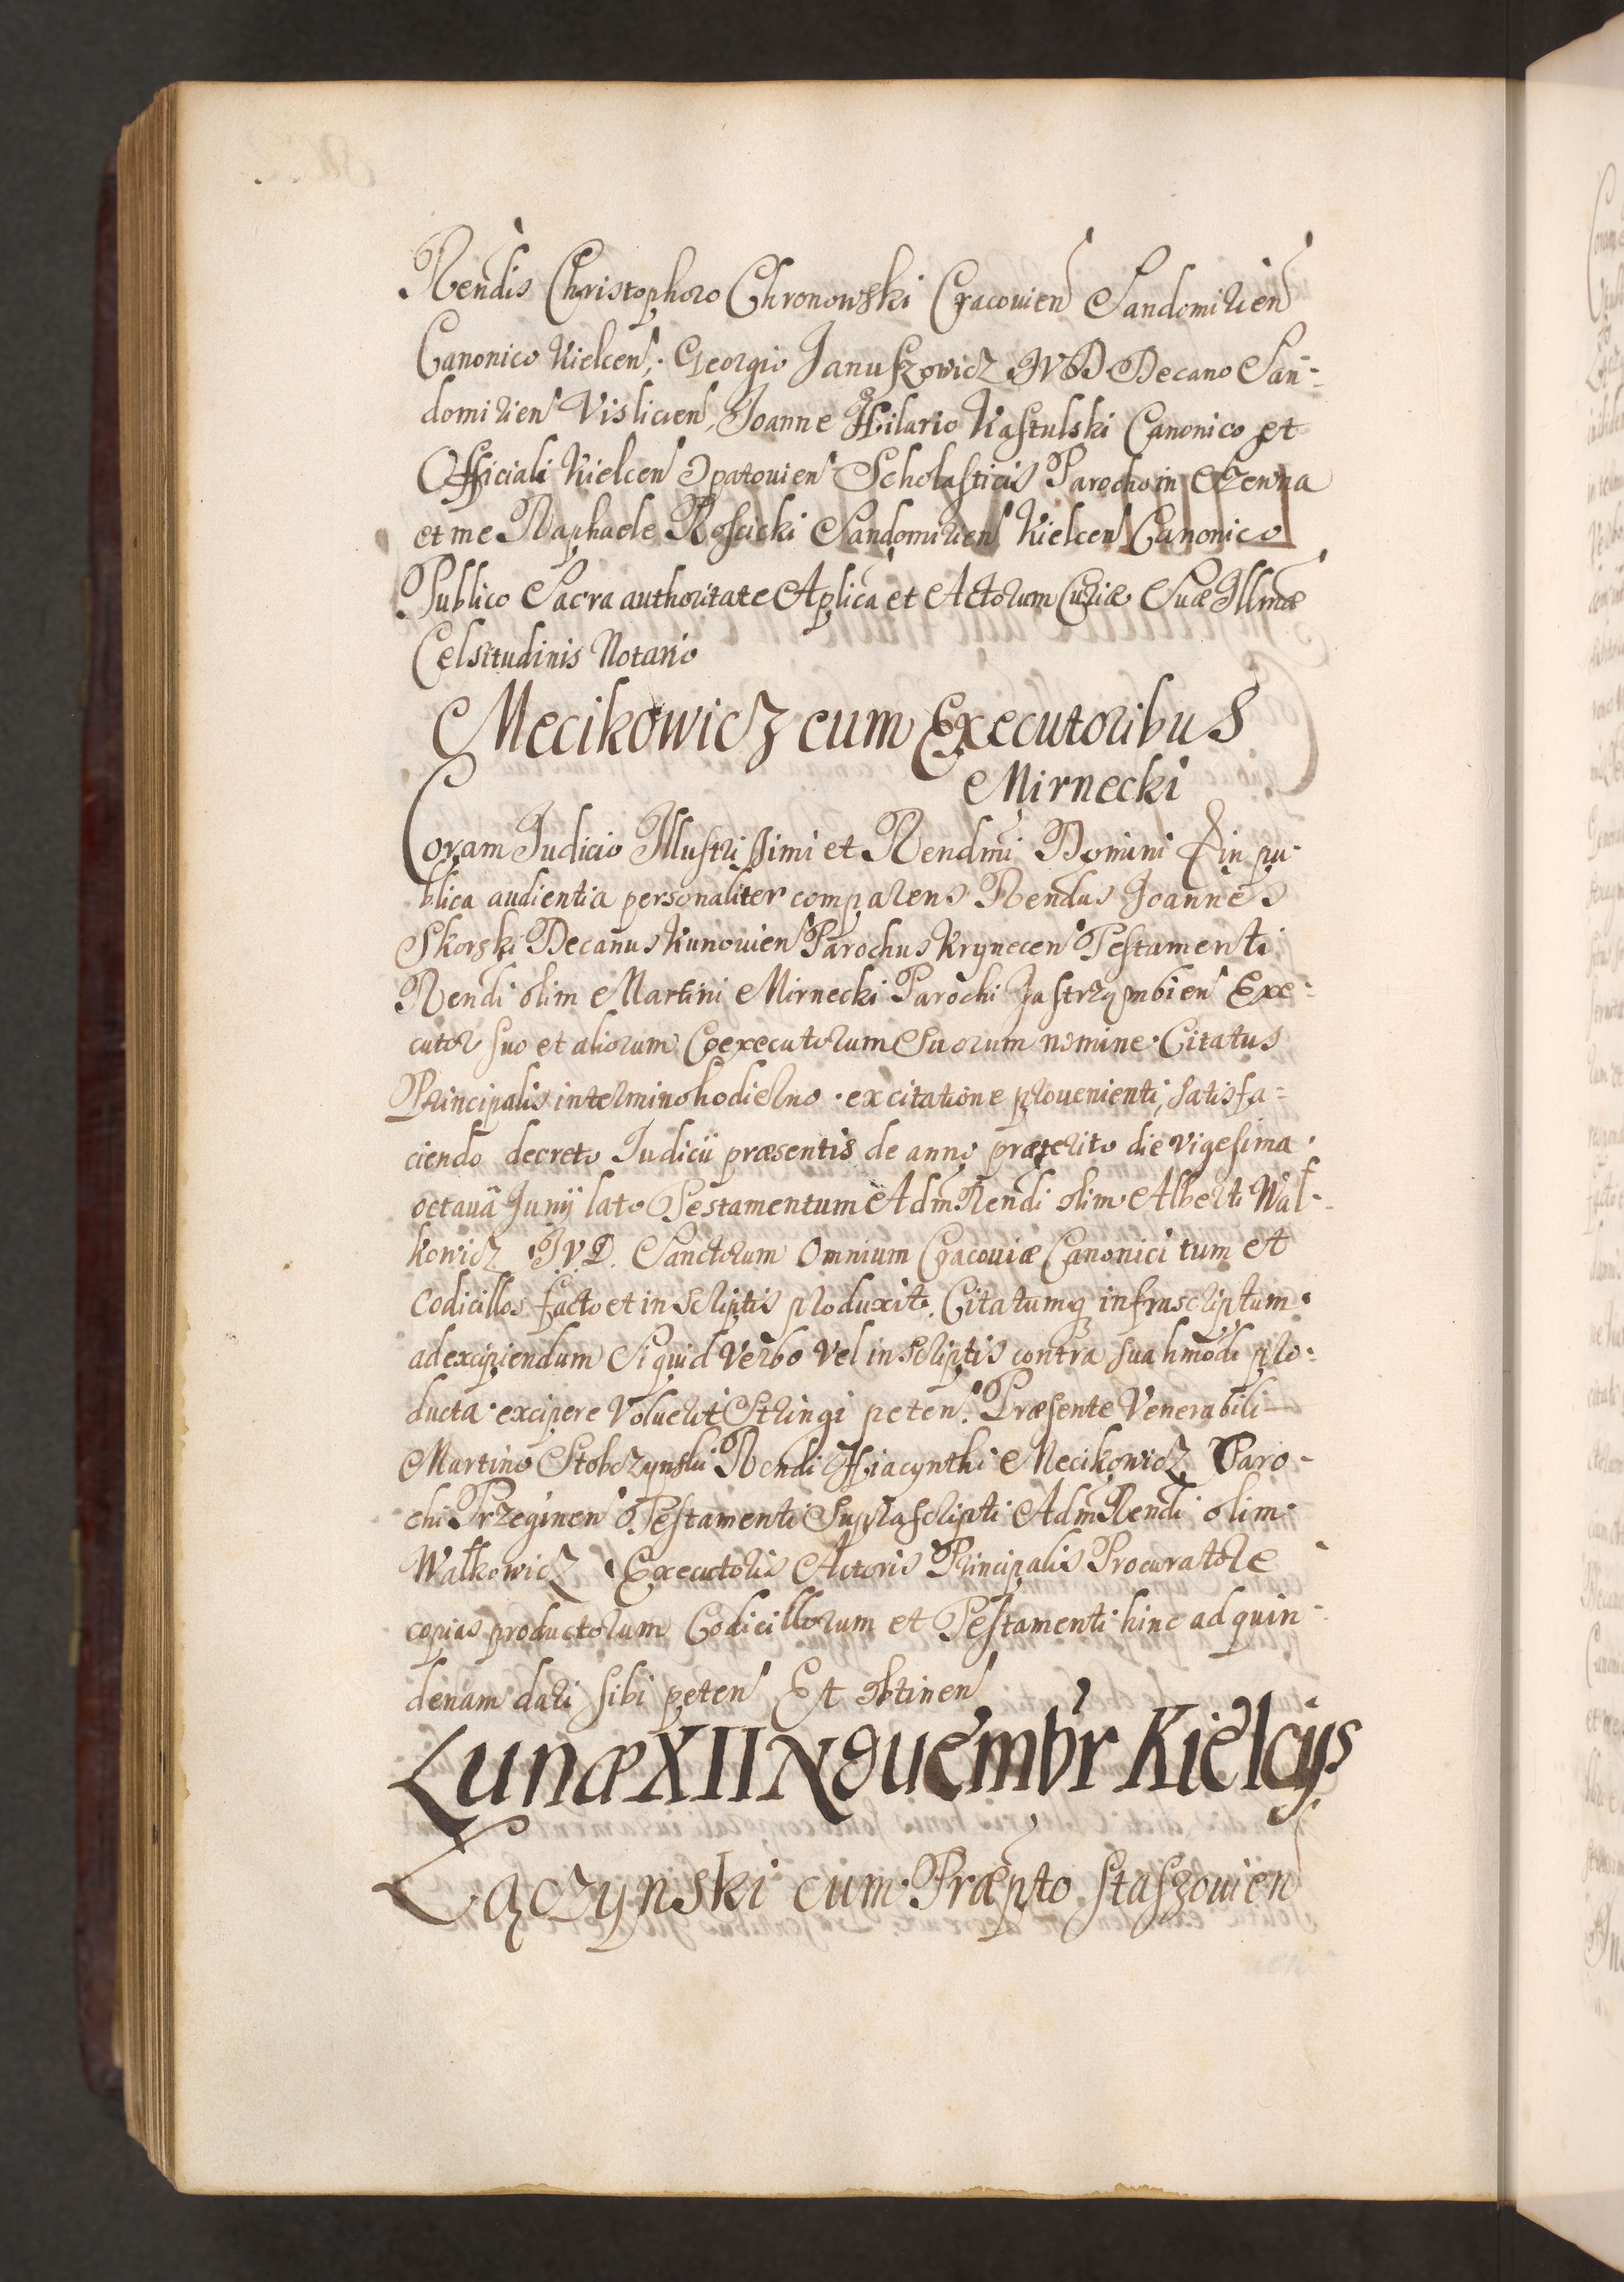 Rendis Christophoro Chronowski Cracouien Sandomirien
Canonico Kielcen, Georgio Januszowicz JVD Decano San=
domirien Vislicien, Joanne Hilario Kastulski Canonico et
Officiali Kielcen Opatouien Scholasticis Parocho in
et me Raphaele Roscicki Sandomirien Kielcen Canonico
Publico Sacra authoritate Aplica et Actorum Curiæ Suæ Illmæ
Celsitudinis Notario
Mecikowicz cum Executoribus
Mirnecki
Coram Judicio Illustrissimi et Rendmi Domini in pu=
blica audientia personaliter comparens Rendus Joannes
Skorski Decanus Kunouien Parochus Krynecen Testamenti
Rendi olim Martini Mirnecki Parochi Jastrzymbien Exe=
cutor suo et aliorum Coexecutorum Suorum nomine. Citatus
Principalis in termino hodierno. ex citatione prouenienti, satisfa=
ciendo decreto Judicii præsentis de anno præterito die vigesima
octaua Junii lato Testamentum Adm Rendi olim Alberti Wal=
kowicz J.V.D. Sanctorum Omnium Cracouiæ Canonici tum et
Codicillos facto et in scriptis produxit. Citatumq infrascriptum
ad excipiendum Siquid Verbo Vel in scriptis contra sua hmodi pro=
ducta excipere Voluerit Stringi peten. Præsente Venerabili
Martino Stobczynski Rendi Hiacynthi Mecikowicz Paro=
chi Przeginen Testamenti Suprascripti Adm Rendi olim
Walkowicz Executoris Actoris Principalis Procuratore
copias productorum Codicillorum et Testamenti hinc ad quin=
denam dari sibi peten Et obtinen
Lunæ XII Nouembr Kielcijs
Łączynski cum Præpto Staszouien